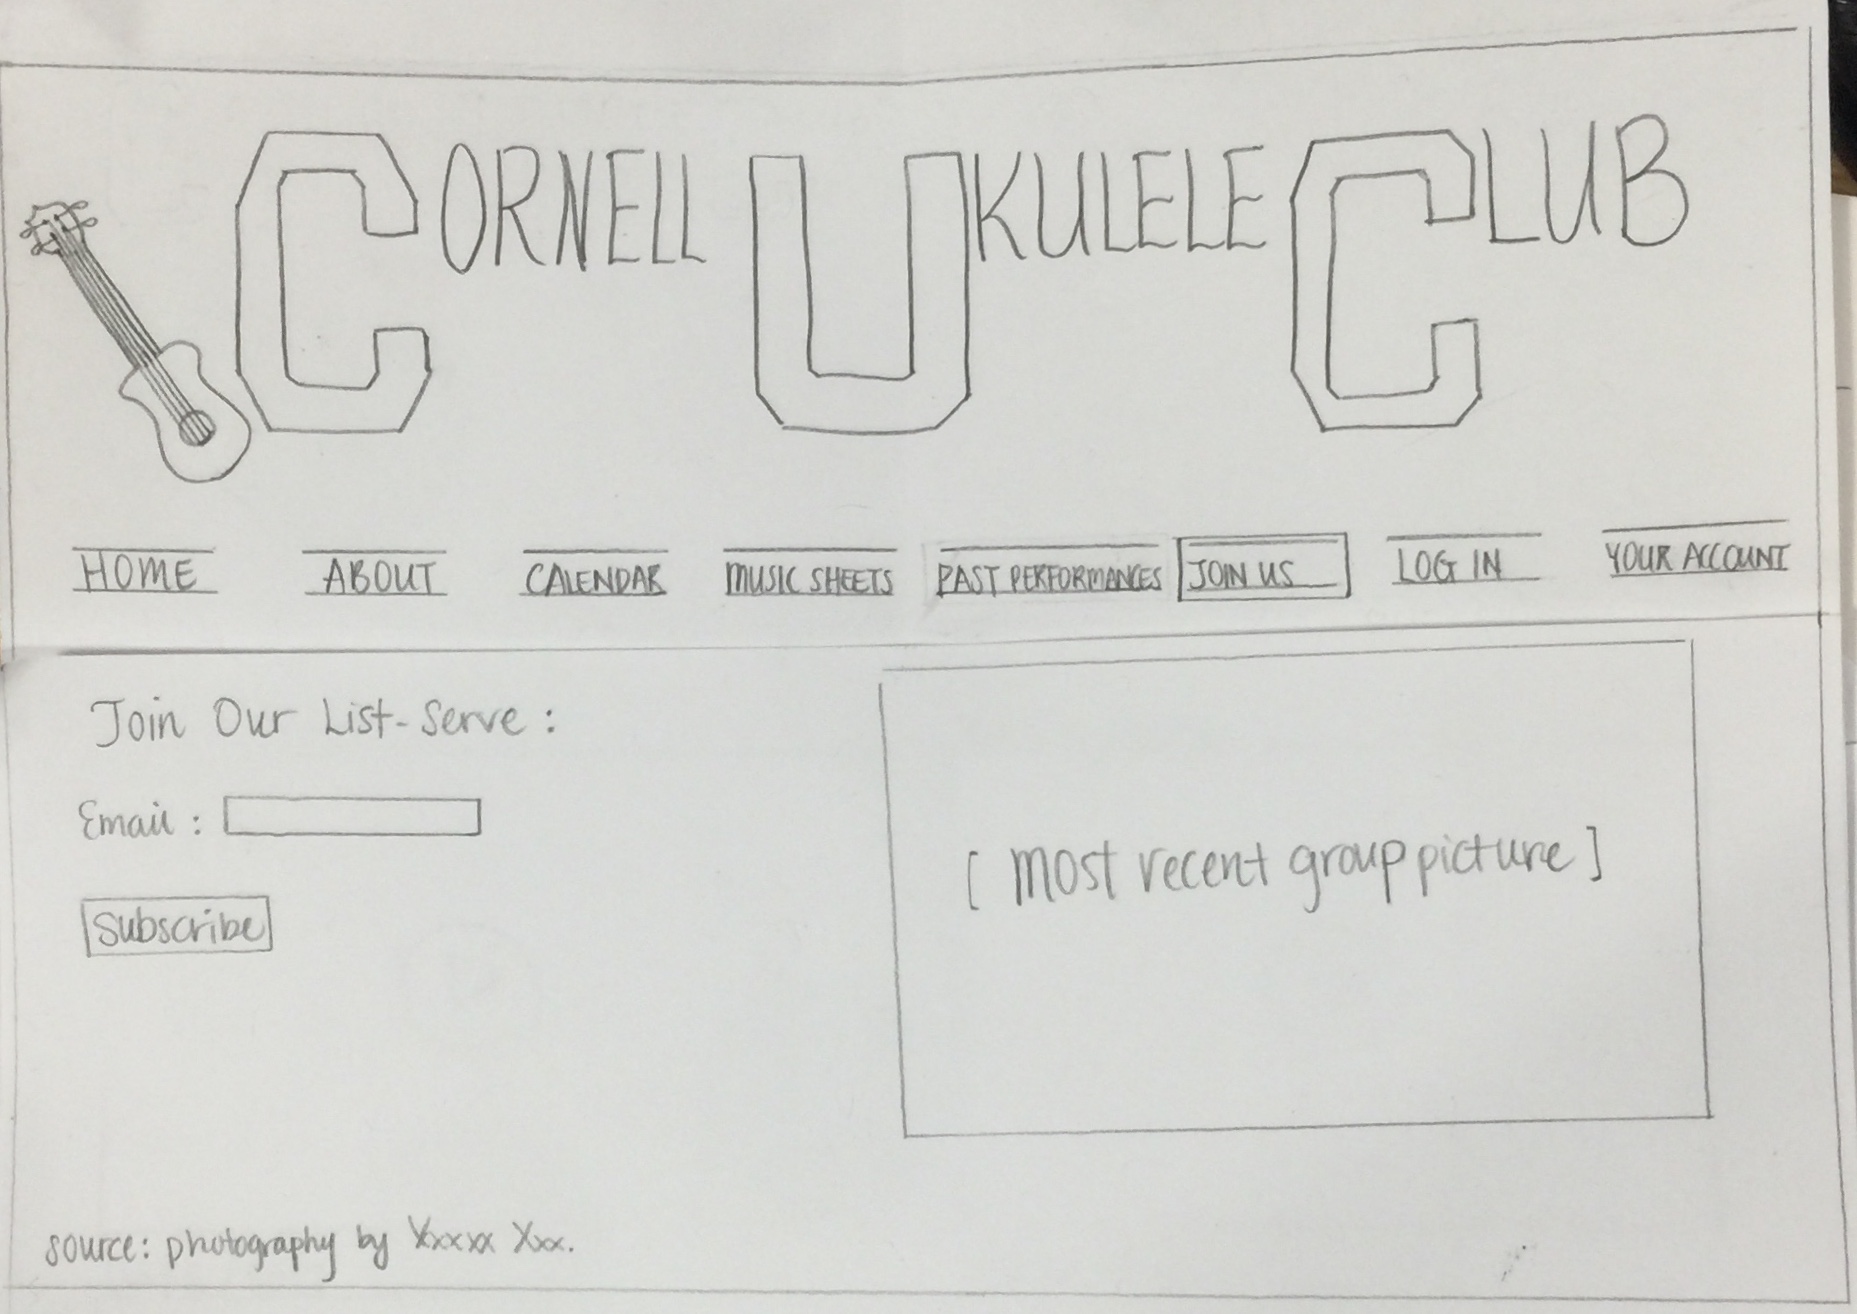 CORNELL UKULELE CLUB
HOME ABOUT CALENDAR MUSIC SHEETS PAST PERFORMANCES JOIN US LOG IN YOUR ACCOUNT
Join Our List-Serve :
Email :
[ most recent group picture ]
Subscribe
source: photography by Xxxxx Xxx.